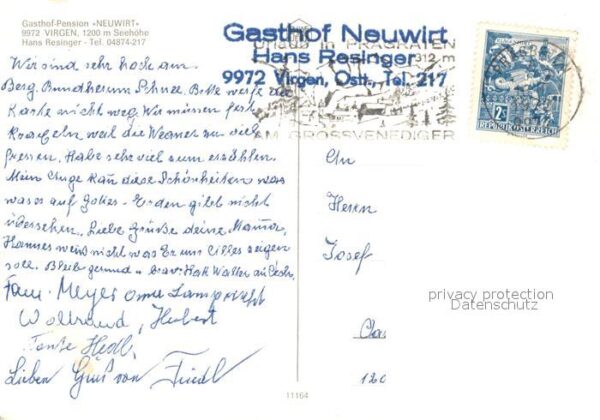 Gasthof-Pension »NEUWIRT«
9972 VIRGEN, 1200 m Seehöhe
Hans Resinger - Tel. 04874-217
Gasthof Neuwirt
Hans Resinger
9972 Virgen, Ostt., Tel. 217
Urlaub in PRÄGRATEN
1312 m
AM GROSSVENEDIGER
2S
REPUBLIK ÖSTERREICH
Wir sind sehr hoch am
Berg. Rundherum Schnee. Bitte werfe
Karte nicht weg. Wir müssen fest
Kraxeln weil die Wegner zu viele
fressen. Habe sehr viel zum erzählen.
Mein Auge kan diese Schönheiten was
was auf Gottes-Erden gibt nicht
übersehen. Liebe Grüße deine Mama,
Hannes weiß nicht was Er uns Alles zeigen
soll. Bleib gesund u brav.
Fam. Meyer
Herbert
Tante Hedl.
Lieben Gruß von Friedl
An
Herrn
Josef
120
11164
privacy protection
Datenschutz